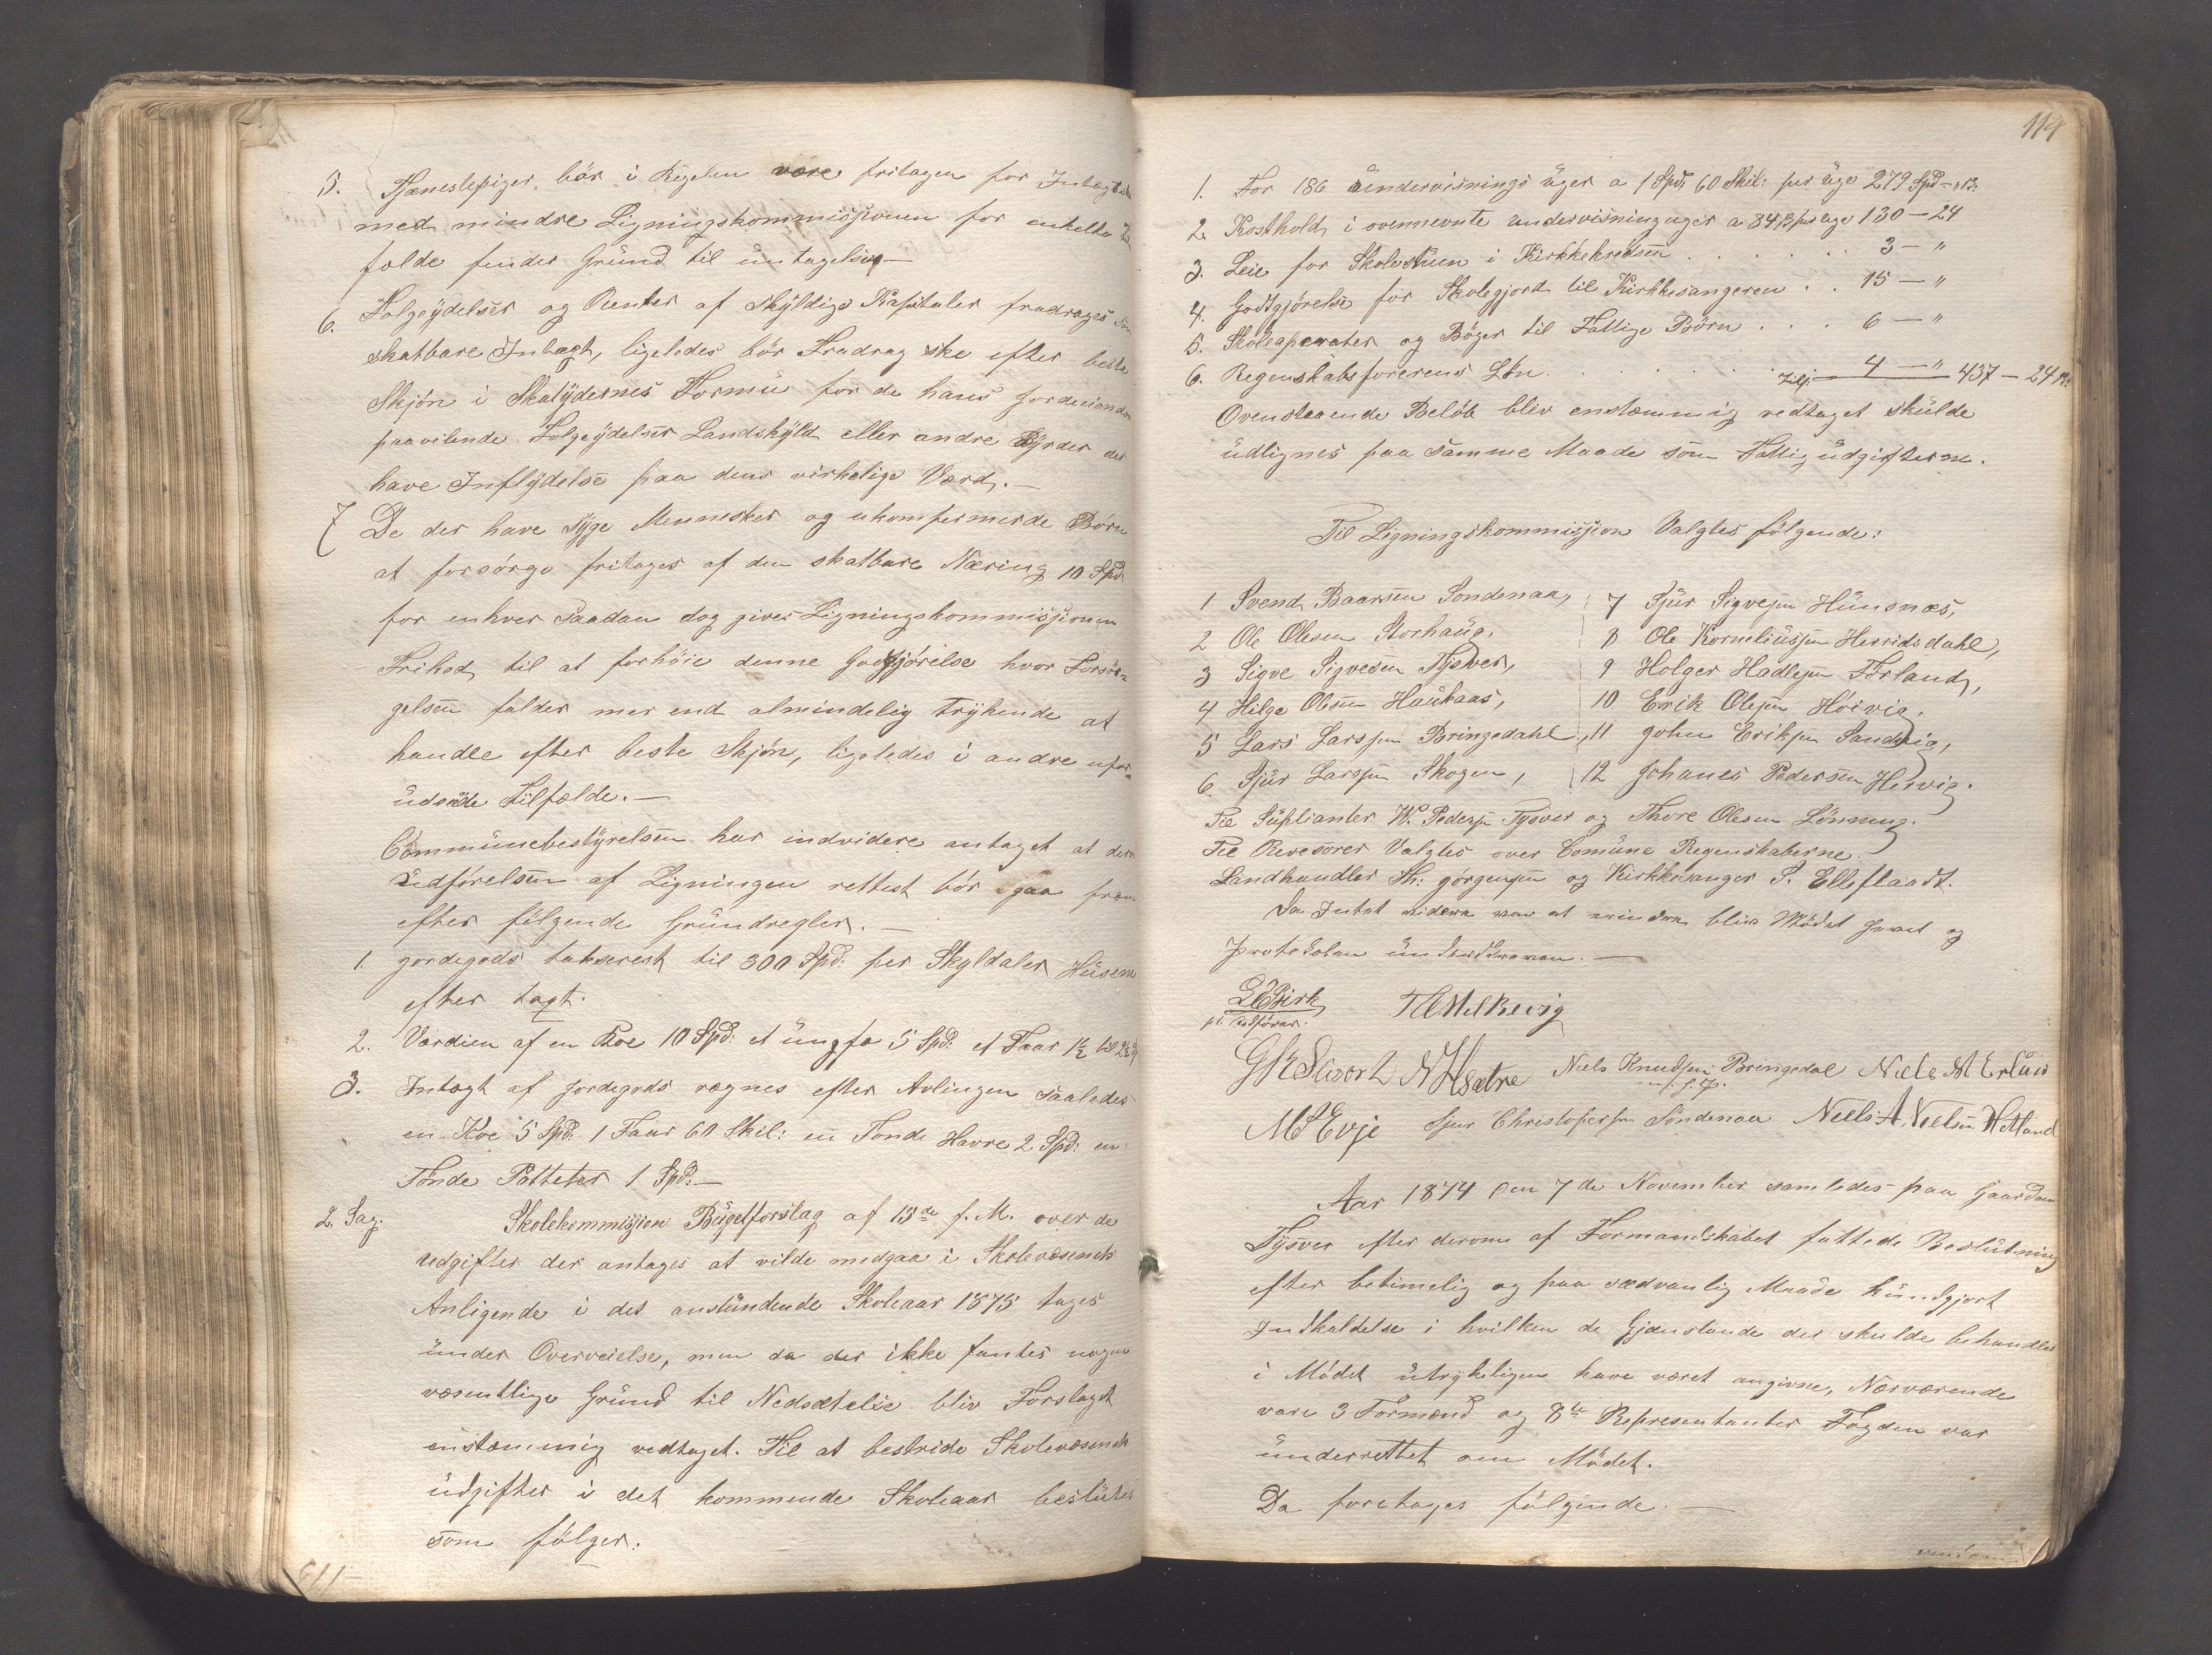 5. Tjenestepiger bør i Regelen være fritagen for
med mindre Ligningskommissjonen for enkelte
fælde finder Grund til undtagelse —
6. Folgeydelser og Renter af skyldige Kapitaler fradrages
skatbare Indtægt, ligeledes bör Fradrag ske efter beste
Skjön i Skatydernes Formu for de hans
paavilende Folgeydelser Landskyld eller andre Byrder der
have Inflydelse paa dens virkelige Værd. —
7 De der have syge Mennesker og ukomfermerde Börn
at forsörge fritages af den skatbare Næring 10 Spd
for enhver saadan dog gives Ligningskommissjonen
Frihed til at forhöie denne Godtgjörelse hvor Forsör-
gelsen falder mer end almindelig trykende at
handle efter beste Skjön, ligeledes i andre
udsede Tilfælde. —
Communebestyrelsen har indvidere antaget at
Udförelsen af Ligningen rettest bör gaa frem
efter fölgende Grundregler. —
1. jordegods takserest til 300 Spd: per Skyldaler Husene
efter tagt.
2. Værdien af en Koe 10 Spd: et ungfæ 5 Spd: et Faar 1½ til 2½
3. Intægt af jordegods regnes efter Avlingen saaledes
en Koe 5 Spd: 1 Faar 60 Skil: en Tonde Havre 2 Spd: en
Tönde Potteter 1 Spd: —
2. Sag. Skolekommisjion Bügetforslag af 13de f. M. over de
Udgifter der antages at vilde medgaa i Skolevæsenets
Anligende i det anstundende Skoleaar 1875 toges
under Overveielse, men da der ikke fantes nogen
væsentlige Grund til Nedsætelse blev Forslaget
enstemmig vedtaget. Til at bestride Skolevæsenets
udgifter i det kommende Skoleaar beslutes
som fölger:
113
114
1. For 186 undervisnings uger a 1 Spd 60 Skil: per uge 279 Spd - " ß:
2. Kosthold i ovennevnte undervisninguger a 84 ß per uge 130 - 24
3. Leie for Skolestuen i Kirkkekredsen . . . . . . 3 - "
4. Godtgjörelse for Skolegjort til Kirkkesangeren . . 15 - "
5. Skoleaperater og Böger til Fattige Börn . . . 6 - "
6. Regenskabsforerens Lön . . . . . 4 - " Tilf. 437 - 24 ß:
Ovenstaaende Belöb blev enstemmig vedtaget skulde
udlignes paa samme Maade som Fattigudgifterne.
Til Ligningskommissjion Valgtes fölgende:
1 Svend Baarsen Sondenaa, 7 Sjur Sigvesen Hunsnæs,
2 Ole Olesen Storhaug, 8 Ole Korneliussen Herridsdahl,
3 Sigve Sigvesen Tysver, 9 Holger Hadlesen Förland,
4 Hilge Olesen Haukaas, 10 Erik Olesen Höivig,
5 Lars Larssen Bringedahl, 11 John Eriksen Sandvig,
6 Sjur Larssen Skogen, 12 Johanes Pedersen Hervig.
Til Suplianter W. Pedersen Tysver og Thore Olesen Lönning.
Til Revesorer Valgtes over Comune Regenskaberne
Landhandler Th: görgensen og Kirkkesanger S. Elleflaadt.
Da Intet videre var at erindre blev Mödet hevet og
Protokolen underskreven. —
Birk
GKSwort NHsætre Niels Knudsen Bringedal Niels M Erland
MEvje Sjur Christofersen Söndenaa Niels A. Nielsen Hetland
Aar 1874 den 7de November samledes paa Gaarden
Tysver efter derom af Formandskabet fattede Beslutning
efter betimelig og paa sædvanlig Maade kundgjort
Indkaldelse i hvilken de Gjenstande der skulde behandles
i Mödet utrykeligen have været angivne, Nærværende
vare 3 Formænd og 8te Representanter Fogden var
underrettet om Mödet.
Da foretages fölgende. —